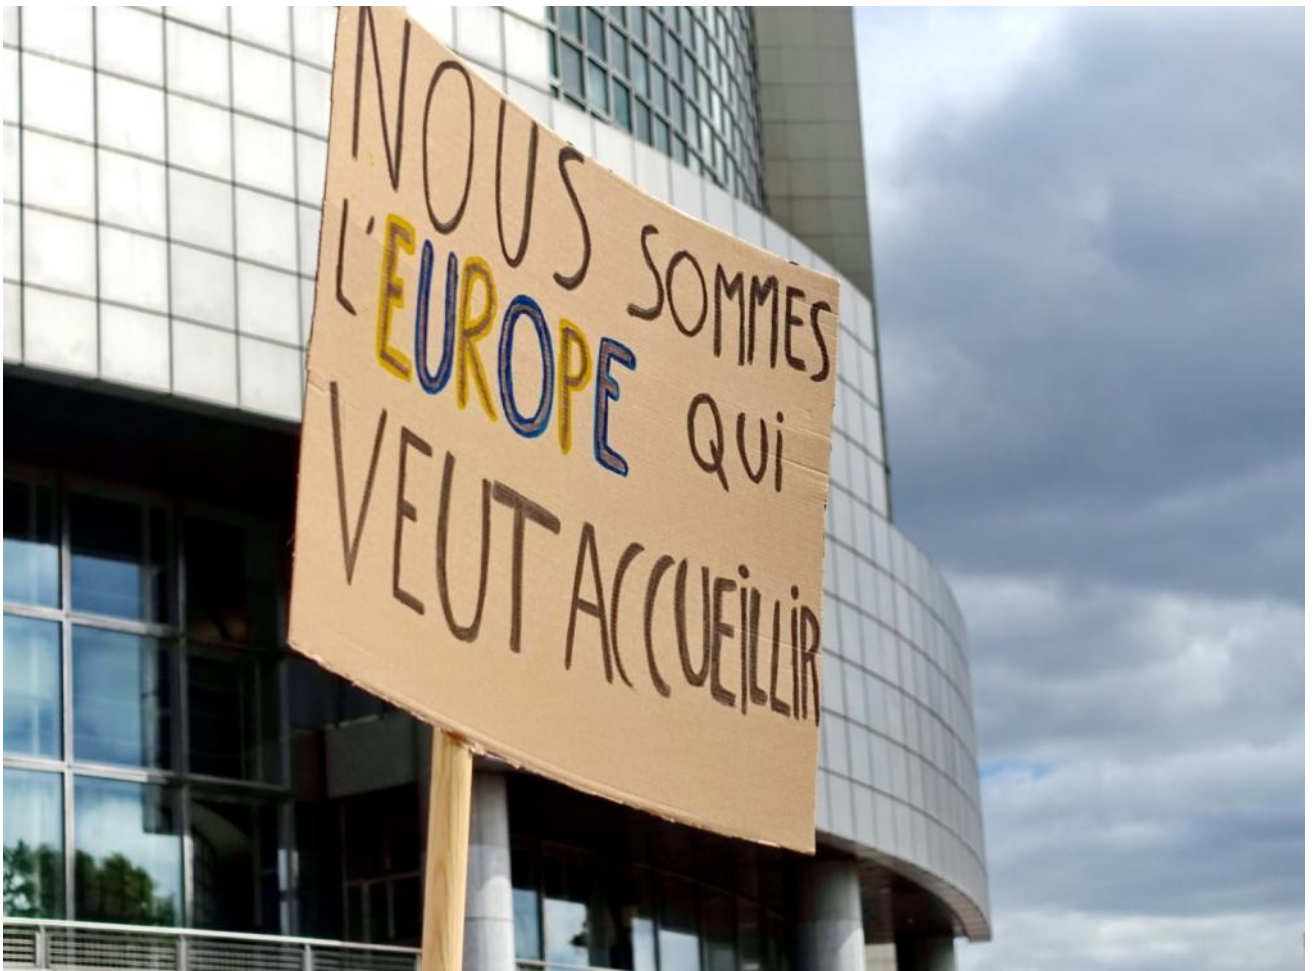 NOUS SOMMES
L'EUROPE QUi
VEUT ACCUEiLLiR